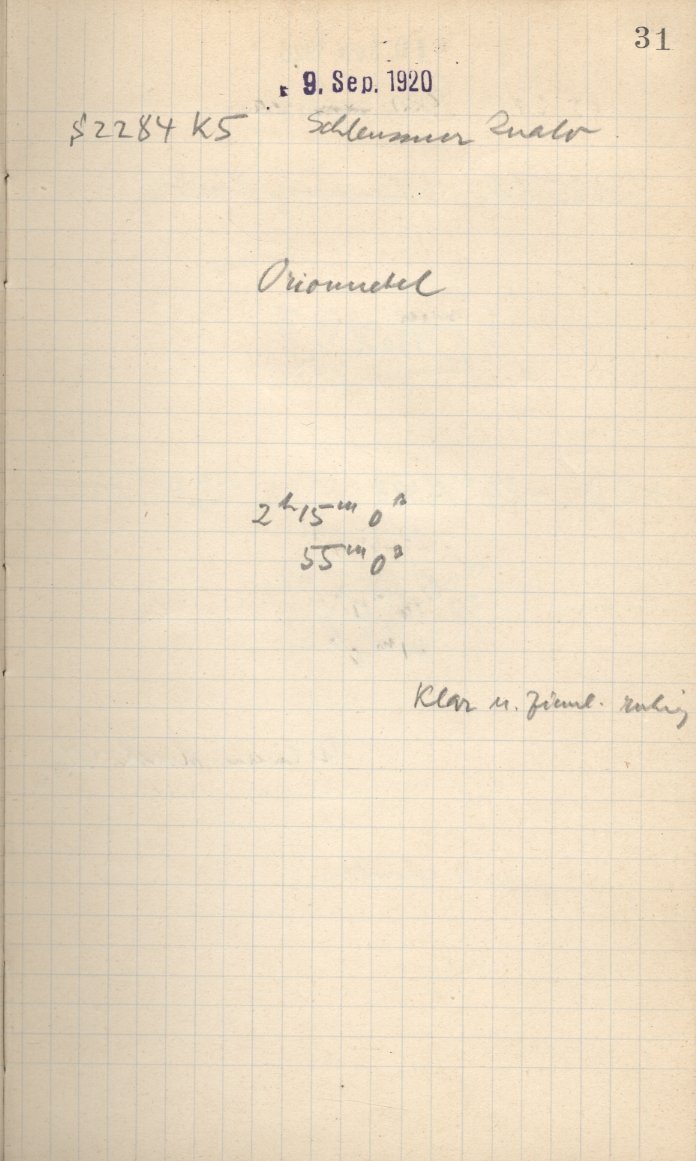 31
9. Sep. 1920
S2284 K5 Schleussner
Orionnebel
2ʰ15ᵐ 0ˢ
55ᵐ 0ˢ
Klar u. zieml. ruhig